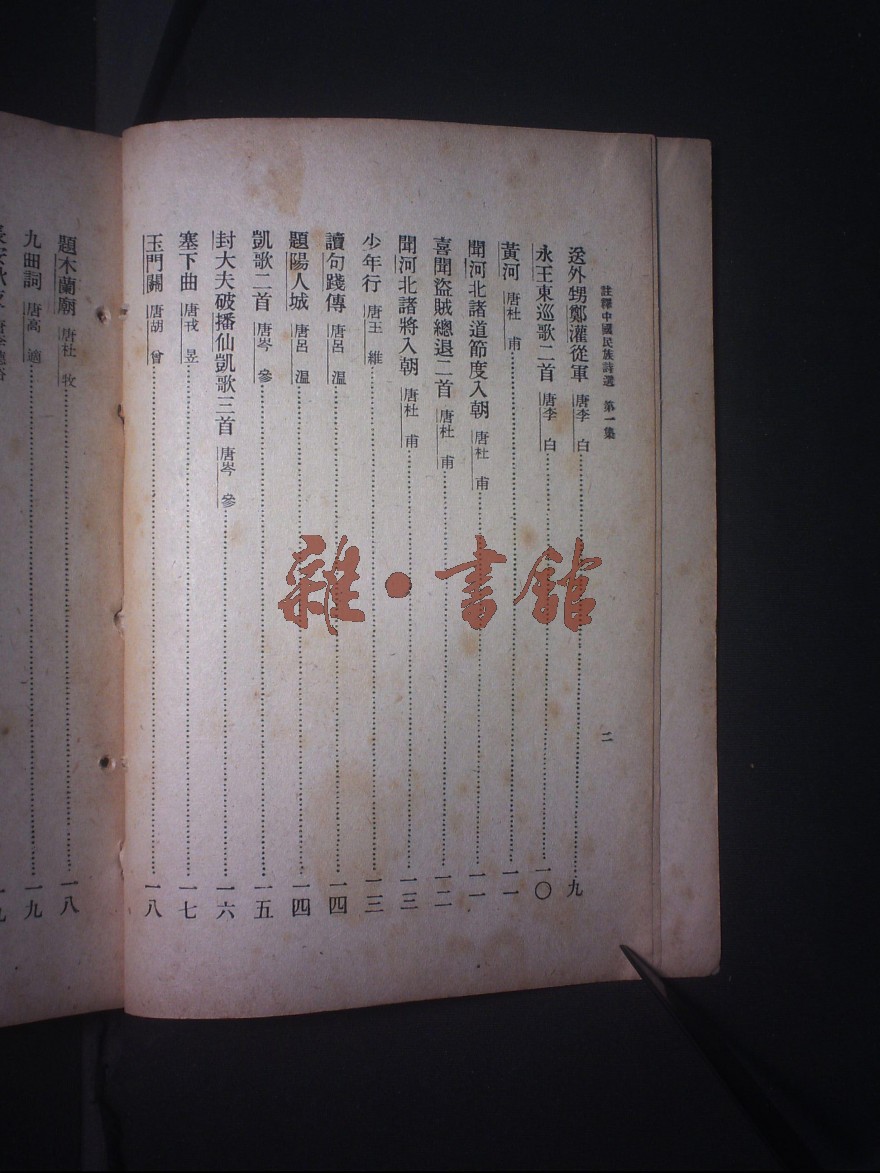 註釋中國民族詩選 第一集
二
送外甥鄭灌從軍 唐李白……九
永王東巡歌二首 唐李白……一〇
黃河 唐杜甫……一一
聞河北諸道節度入朝 唐杜甫……一一
喜聞盜賊總退二首 唐杜甫……一二
聞河北諸將入朝 唐杜甫……一三
少年行 唐王維……一三
讀句踐傳 唐呂溫……一四
題陽人城 唐呂溫……一四
凱歌二首 唐岑參……一五
封大夫破播仙凱歌三首 唐岑參……一六
塞下曲 唐戎昱……一七
玉門關 唐胡曾……一八
題木蘭廟 唐杜牧……一八
九曲詞 唐高適……一九
雜·書館